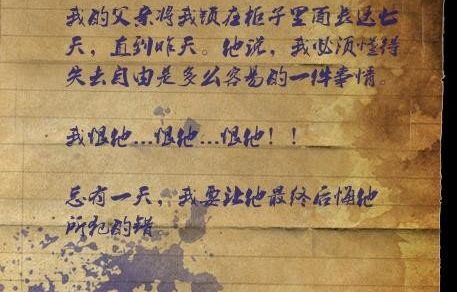 我的父亲将我锁在柜子里面长达七
天，直到昨天。他说，我必须懂得
失去自由是多么容易的一件事情。
我恨他...恨他...恨他！！
总有一天，我要让他最终后悔他
所犯的错